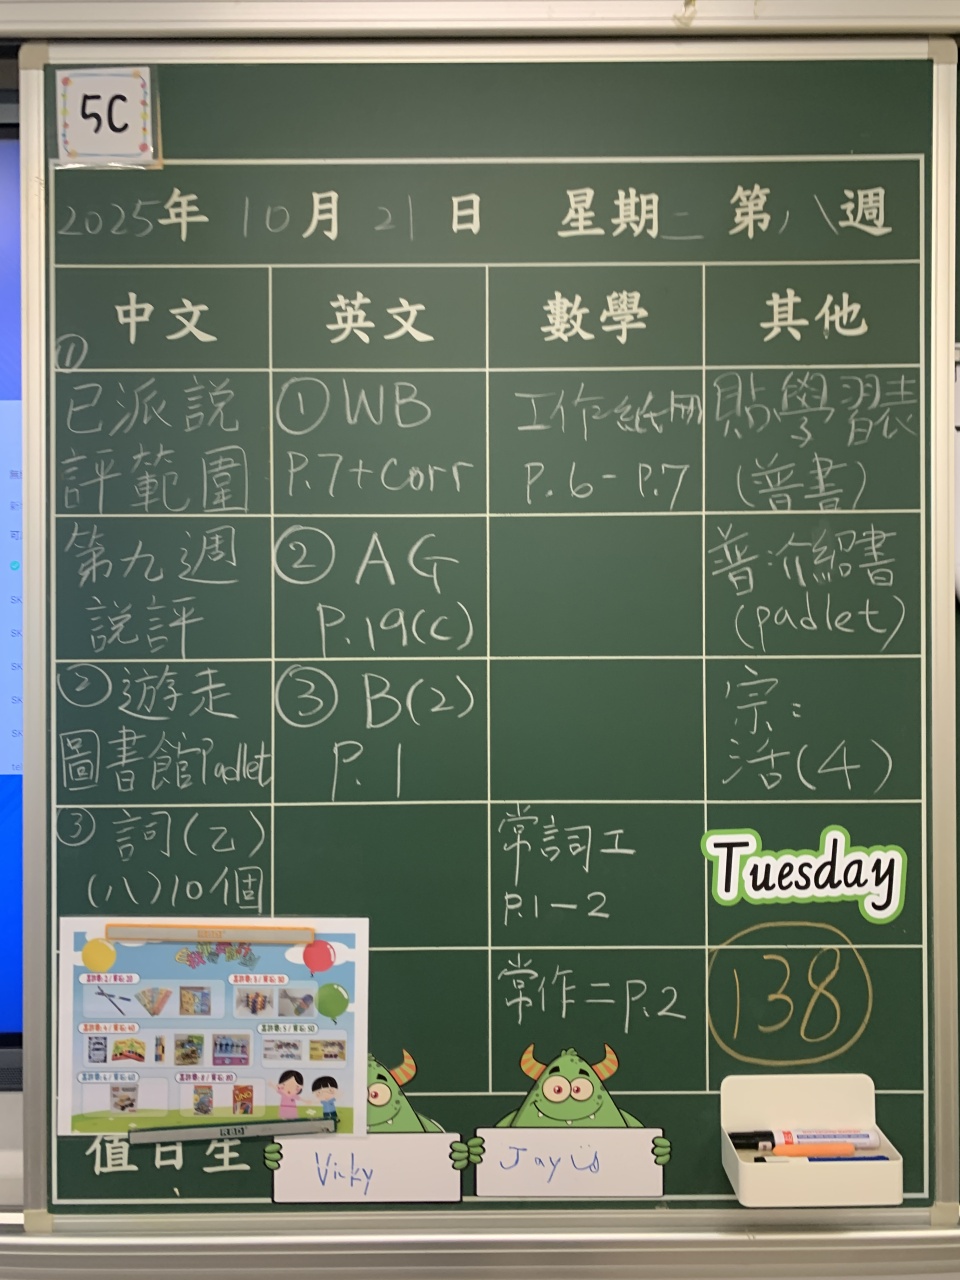 5C
2025年 10月 21日 星期二 第八週
中文 英文 數學 其他
①
已派説
評範圍
第九週
説評
②遊走
圖書館Padlet
③ 詞(乙)
(八)10個
① WB
P.7+Corr
② AG
P.19(c)
③ B(2)
P.1
工作紙冊
P.6-P.7
常詞工
P.1-2
常作二P.2
貼學習表
(普書)
普:介紹書
(padlet)
宗:
活(4)
Tuesday
138
值日生
Vicky